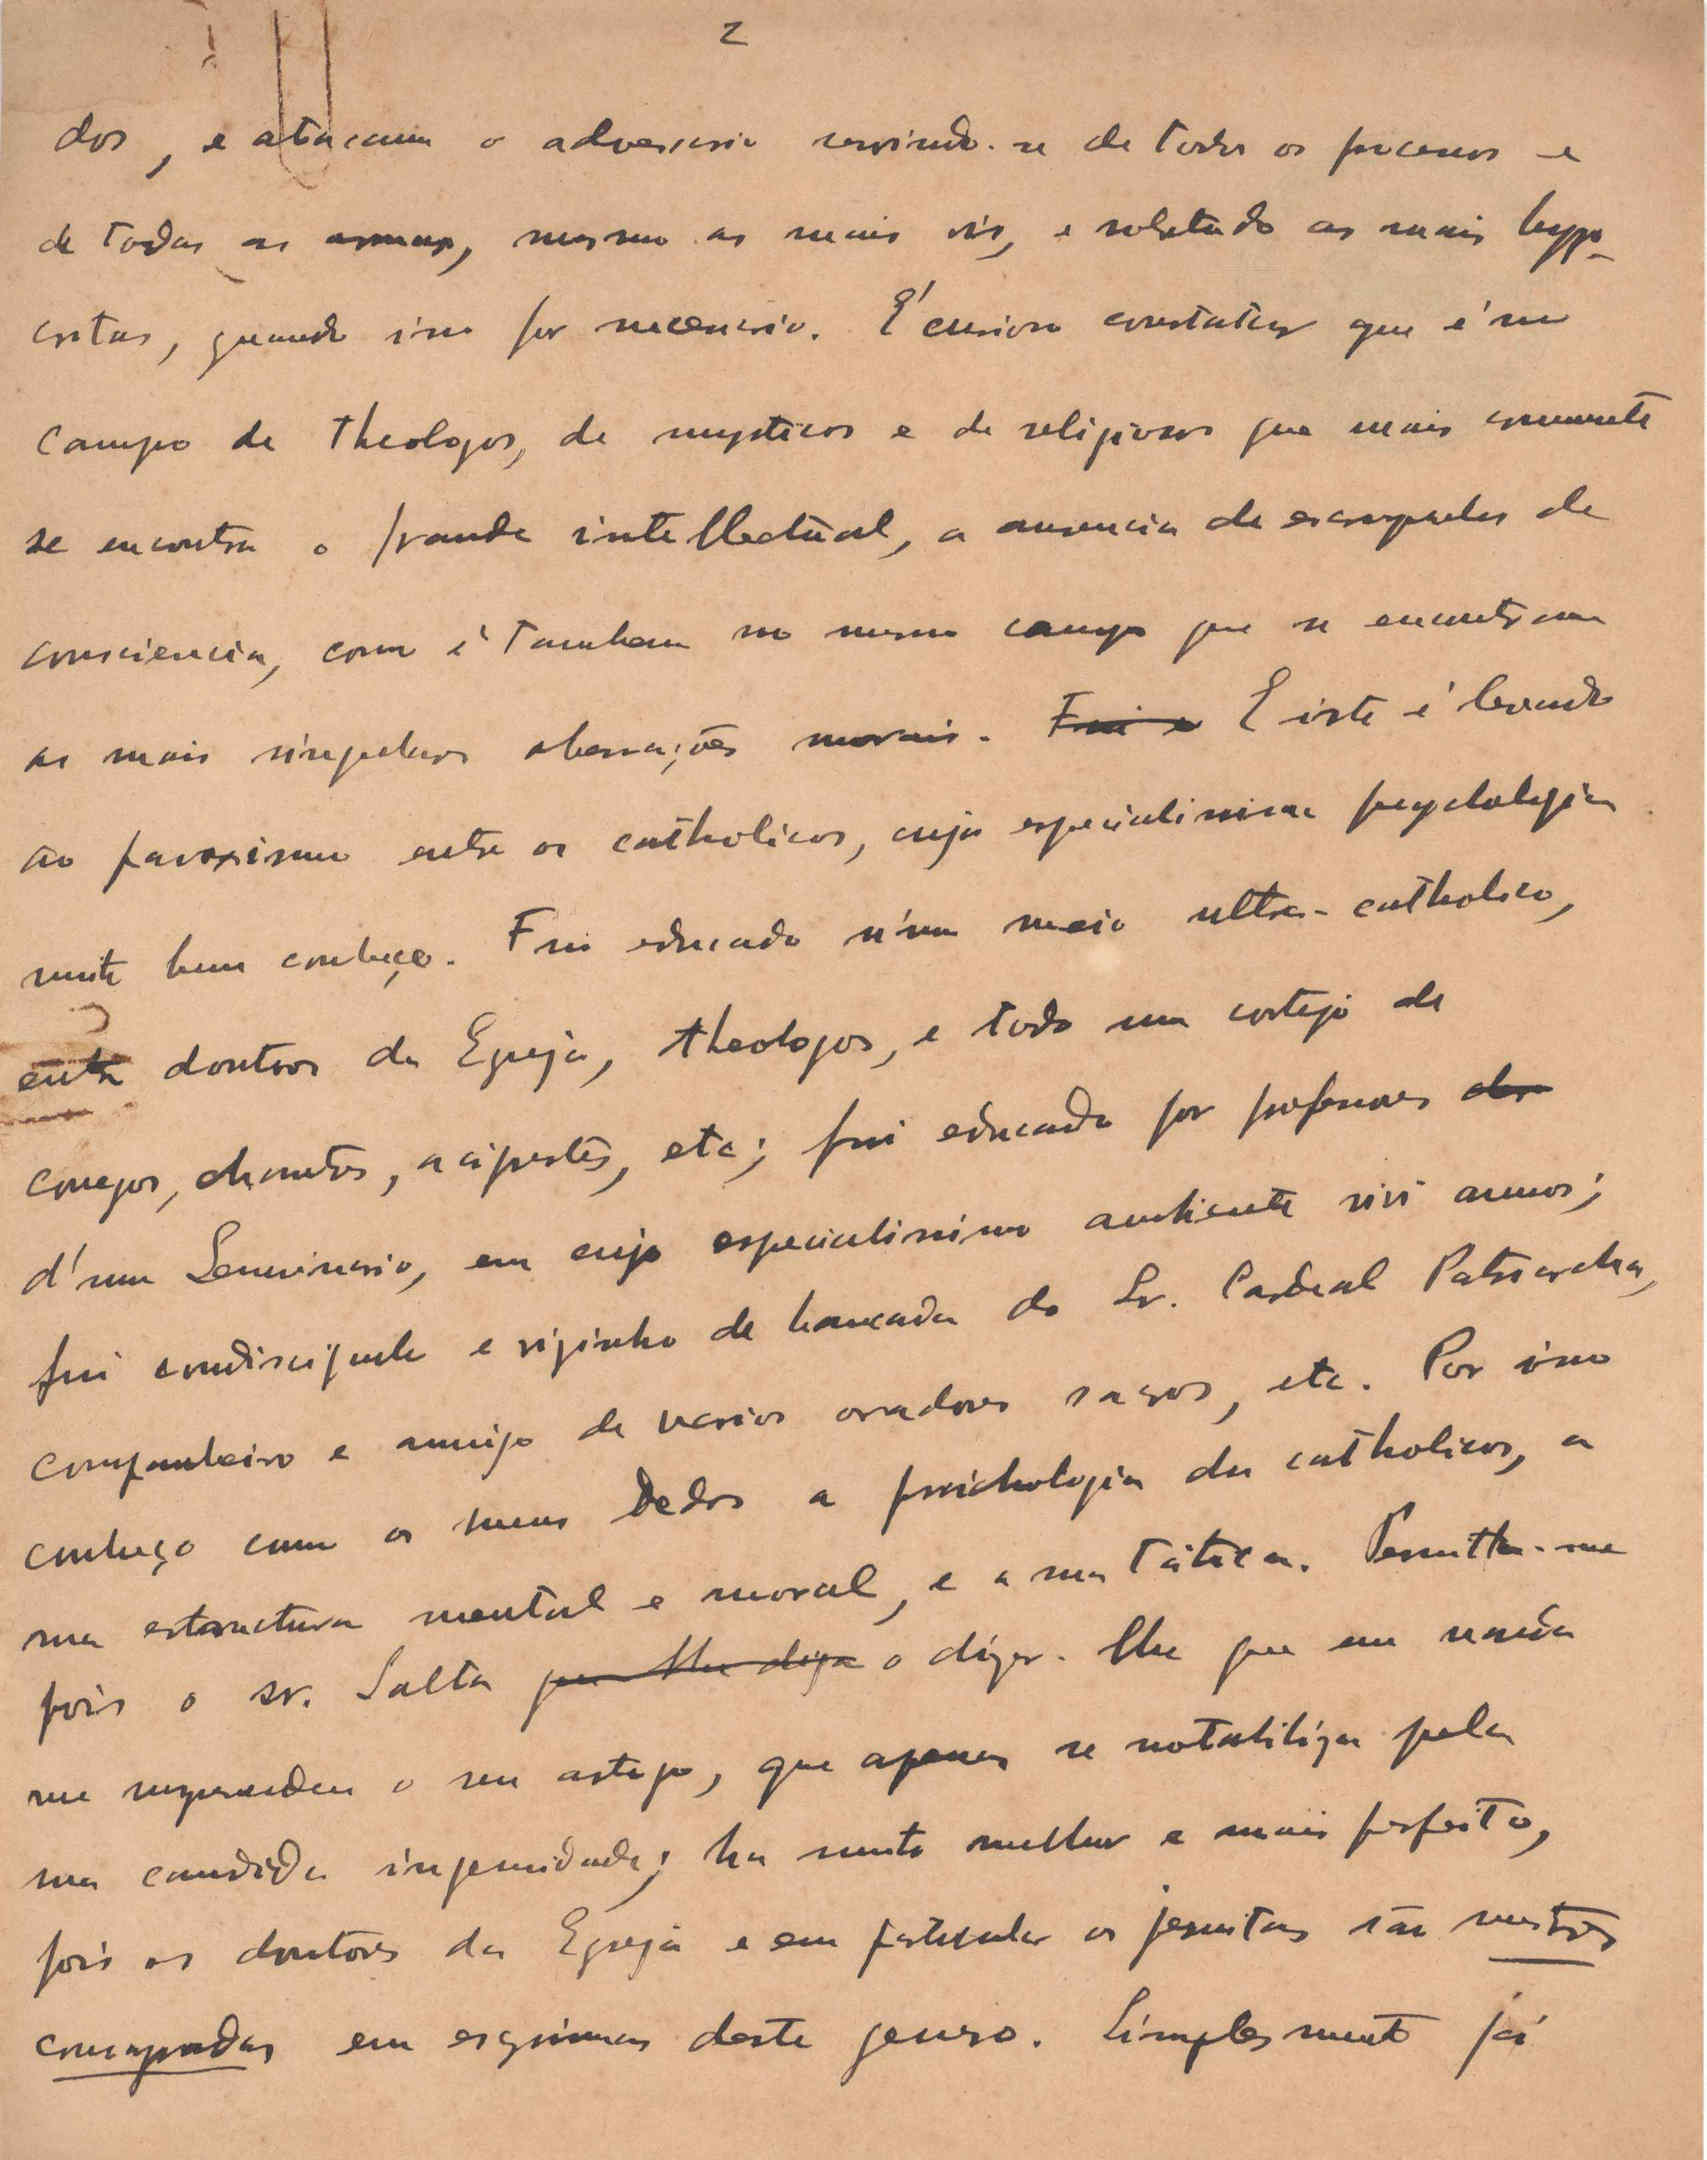 2
dos, e atacam o adversario servindo-se de todos os processos e
de todas as armas, mesmo as mais vis, e sobretudo as mais hypo-
critas, quando isso for necessario. É curioso constatar que é no
campo de theologos, de mysticos e de religiosos que mais comummente
se encontra a fraude intellectual, a ausencia de escrupulos de
consciencia, como é tambem no mesmo campo que se encontram
as mais singulares aberrações moraes. Fui e E isto é levado
ao paroxismo entre os catholicos, cuja especialissima psychologia
muito bem conheço. Fui educado n'um meio ultra-catholico,
entre doutores da Egreja, theologos, e todo um cortejo de
conegos, chantres, acipestes, etc; fui educado por professores do
d'um Seminario, em cujo especialissimo ambiente vivi annos;
fui condiscipulo e vizinho de bancada do Sr. Cardeal Patriarcha,
companheiro e amigo de varios oradores sacros, etc. Por isso
conheço como os meus dedos a psichologia dos catholicos, a
sua estructura mental e moral, e a sua tática. Permitta-me
pois o sr. Salta que lhe diga o dizer-lhe que em nada
me surprendeu o seu artigo, que apenas se notabiliza pela
sua candida ingenuidade; ha muito melhor e mais perfeito,
pois os doutores da Egreja e em particular os jesuitas são mestres
consagrados em esgrimas deste genero. Simplesmente já